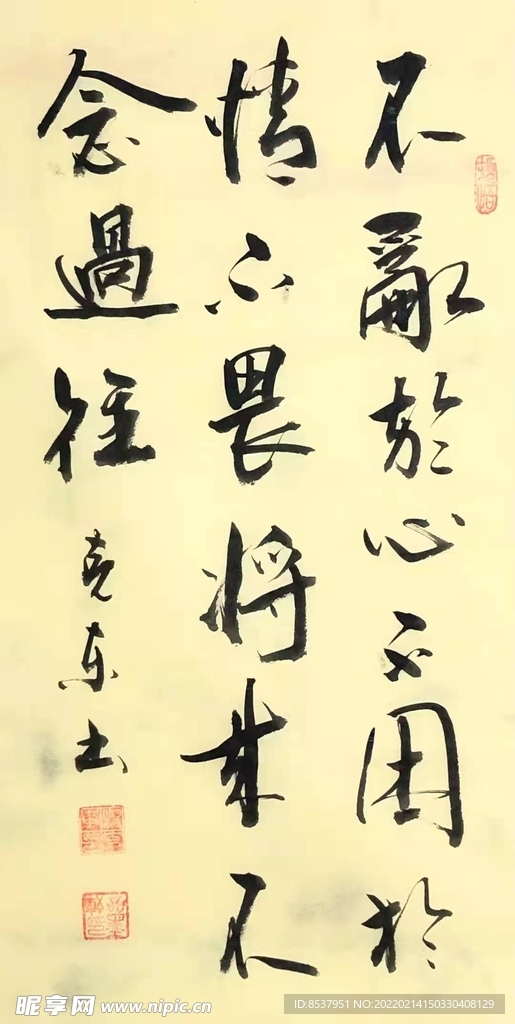 不亂於心不困於
情不畏將來不
念過往
克東书
昵享网 www.nipic.cn
ID:8537951 NO:20220214150330408129